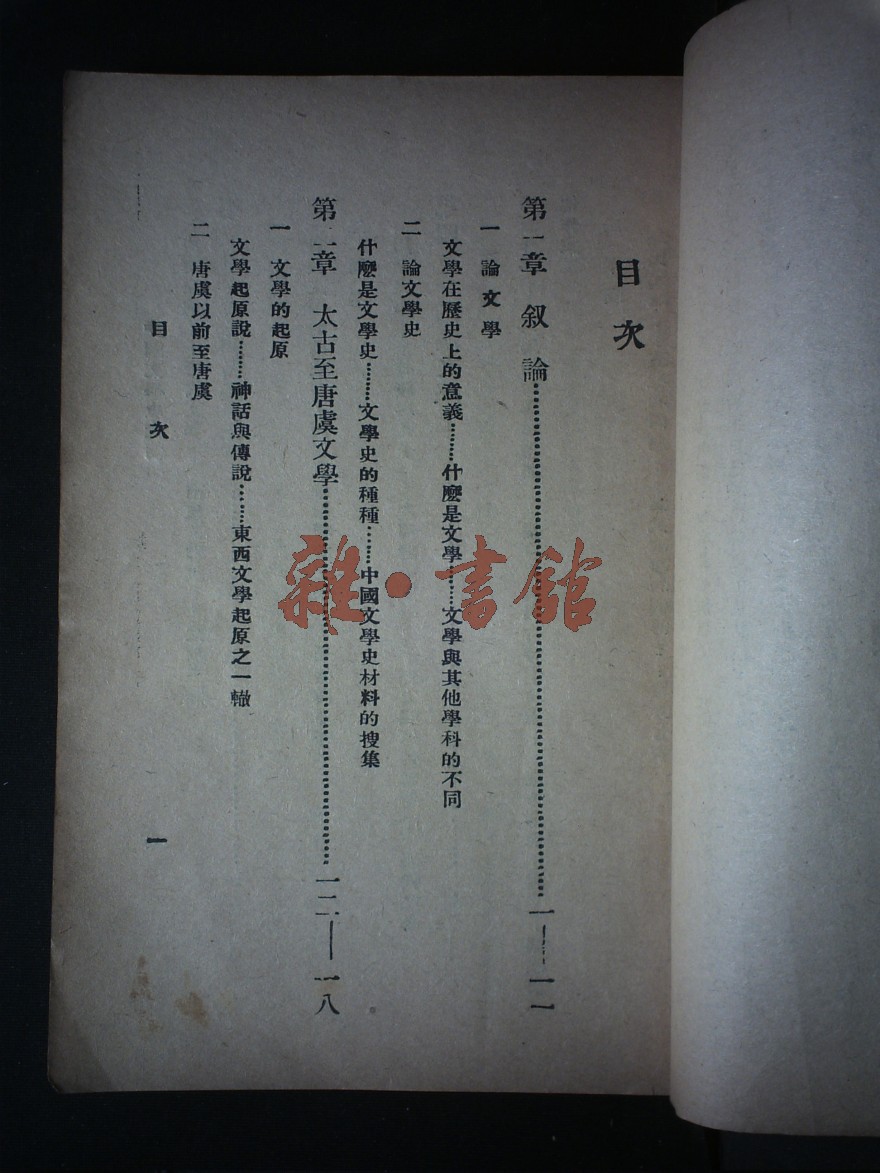 目次
第一章　叙論…………一——一一
一　論文學
文學在歷史上的意義………什麼是文學………文學與其他學科的不同
二　論文學史
什麼是文學史………文學史的種種………中國文學史材料的搜集
第二章　太古至唐虞文學…………一二——一八
一　文學的起原
文學起原說………神話與傳說………東西文學起原之一轍
二　唐虞以前至唐虞
目次
一
雜·書館